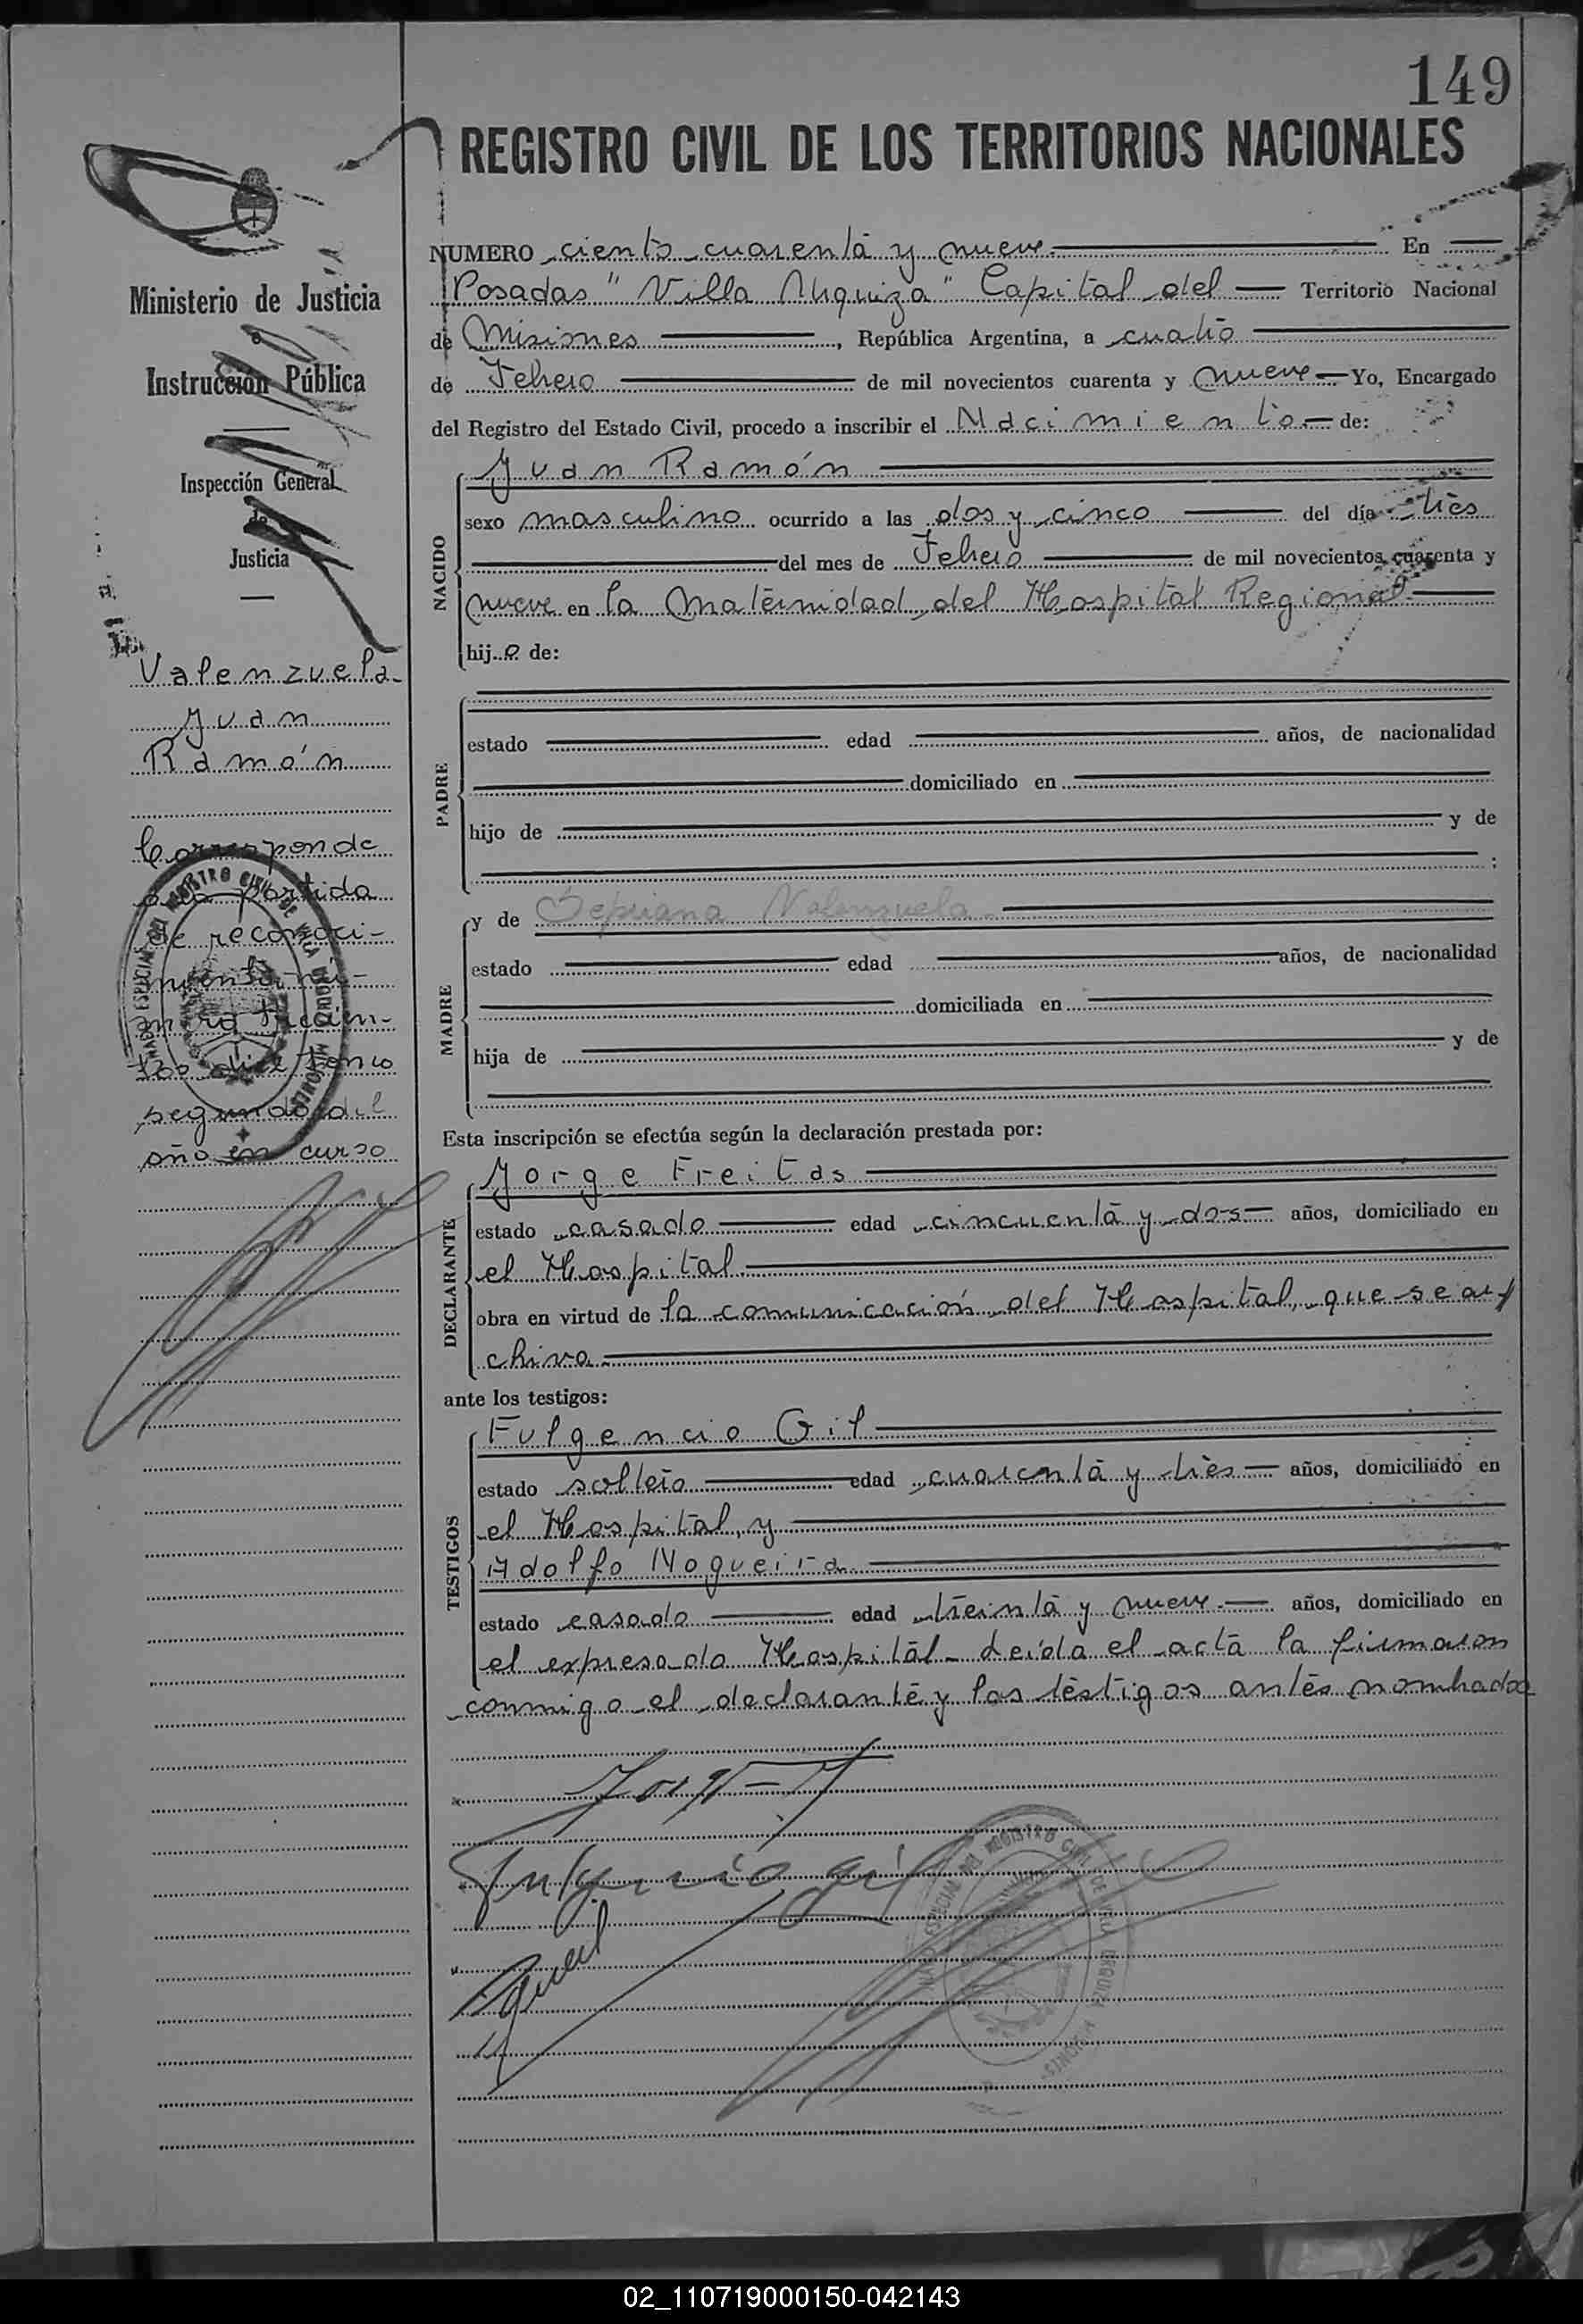 149
REGISTRO CIVIL DE LOS TERRITORIOS NACIONALES
Ministerio de Justicia
e
Instrucción Pública
Inspección General
de
Justicia
Valenzuela
Juan
Ramón
Corresponde
a la partida
de reconoci-
miento nú-
mero trecien-
tos diez tomo
segundo del
año en curso
NUMERO ciento cuarenta y nueve En
Posadas "Villa Urquiza" Capital del Territorio Nacional
de Misiones, República Argentina, a cuatro
de Febrero de mil novecientos cuarenta y nueve Yo, Encargado
del Registro del Estado Civil, procedo a inscribir el Nacimiento de:
NACIDO
Juan Ramón
sexo masculino ocurrido a las dos y cinco del día tres
del mes de Febrero de mil novecientos cuarenta y
nueve en la Maternidad del Hospital Regional
hijo de:
PADRE
estado edad años, de nacionalidad
domiciliado en
hijo de y de
:
MADRE
y de Valenzuela
estado edad años, de nacionalidad
domiciliada en
hija de y de
Esta inscripción se efectúa según la declaración prestada por:
DECLARANTE
Jorge Freitas
estado casado edad cincuenta y dos años, domiciliado en
el Hospital
obra en virtud de la comunicación del Hospital, que se ar
chiva
ante los testigos:
TESTIGOS
Fulgencio Gil
estado soltero edad cuarenta y tres años, domiciliado en
el Hospital, y
Adolfo Nogueira
estado casado edad treinta y nueve años, domiciliado en
el expresado Hospital. Leída el acta la firmaron
conmigo el declarante y los testigos antes nombrados
Fulgencio Gil
02_110719000150-042143